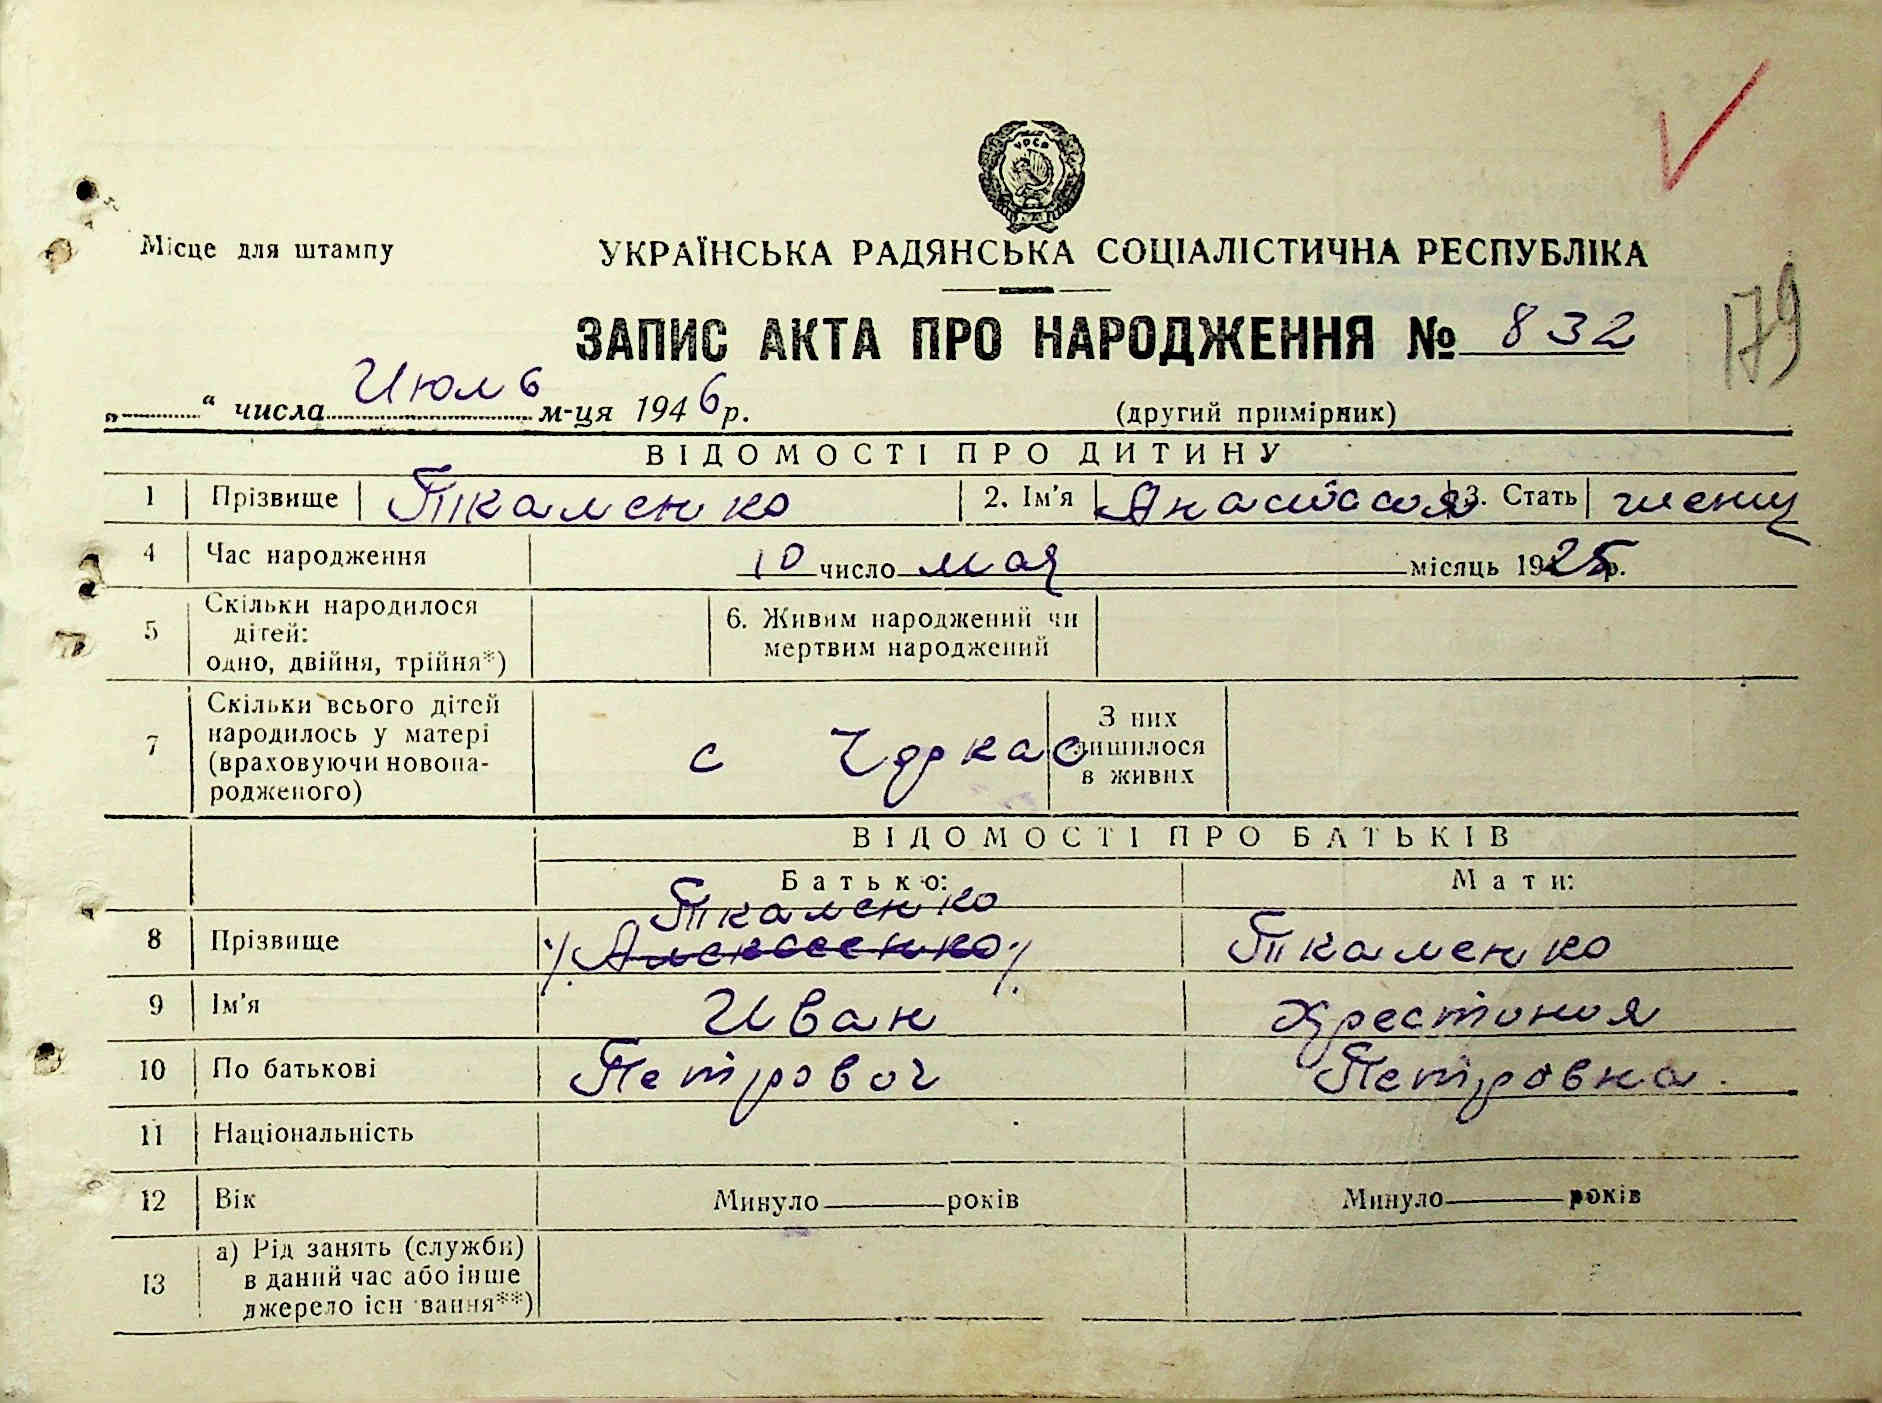 УРСР
Місце для штампу
УКРАЇНСЬКА РАДЯНСЬКА СОЦІАЛІСТИЧНА РЕСПУБЛІКА
179
ЗАПИС АКТА ПРО НАРОДЖЕННЯ № 832
„ “ числа Июль м-ця 1946 р.
(другий примірник)
ВІДОМОСТІ ПРО ДИТИНУ
1 Прізвище Ткаченко 2. Ім'я Анастасия 3. Стать женщ
4 Час народження 10 число мая місяць 1925 р.
5 Скільки народилося дітей: одно, двійня, трійня*) 6. Живим народжений чи мертвим народжений
7 Скільки всього дітей народилось у матері (враховуючи новонародженого) с Черкас З них лишилося в живих
ВІДОМОСТІ ПРО БАТЬКІВ
Батько: Мати:
Ткаченко
8 Прізвище Ткаченко
9 Ім'я Иван Хрестиния
10 По батькові Петрович Петровна
11 Національність
12 Вік Минуло років Минуло років
13 а) Рід занять (служби) в даний час або інше джерело існування**)